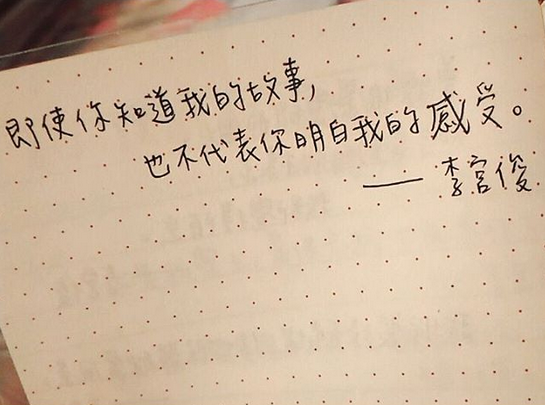 即使你知道我的故事,
也不代表你明白我的感受。
—— 李宮俊